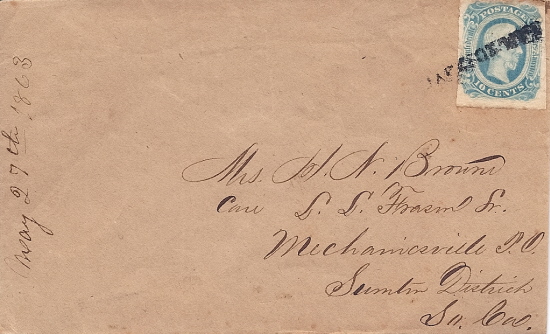 POSTAGE
10 CENTS
Mrs. H. N. Browne
Care L. L. Fraser Sr.
Mechanicsville P.O.
Sumter District
So. Ca.
May 27th, 1863